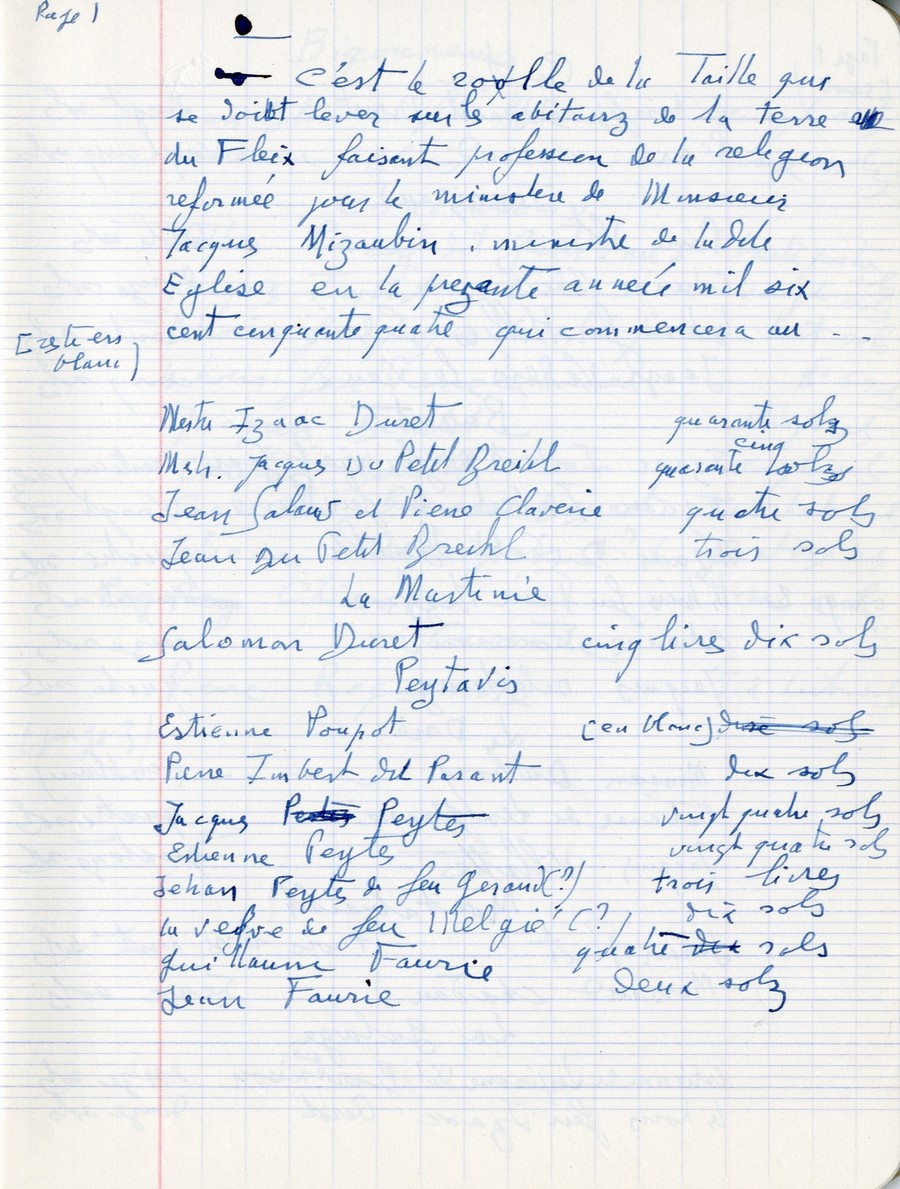 Page 1
C'est le roolle de la Taille qui
se doibt lever sur les abitanz de la terre
du Fleix faisant profession de la religion
reformée sous le ministere de Monsieur
Jacques Mizaubin, ministre de ladite
Eglise en la prezante année mil six
cent cinquante quatre qui commencera au - -
[resté en
blanc]
Mestre Izaac Duret quarante solz
Mestr. Jacques Du Petit Breihl quarante cinq solz
Jean Salaus et Pierre Claverie quatre sols
Jean Du Petit Breihl trois sols
La Martinie
Salomon Duret cinq livres dix sols
Peytavis
Estienne Poupot [en blanc] dixe sols
Pierre Imbert dit Parant dix sols
Jacques Peytes vingt quatre sols
Estienne Peytes vingt quatre sols
Jehan Peytes de feu Geraud (?) trois livres
la vefve de feu Melgie (?) dix sols
Guillaume Faurie quatre dix sols
Jean Faurie Deux solz